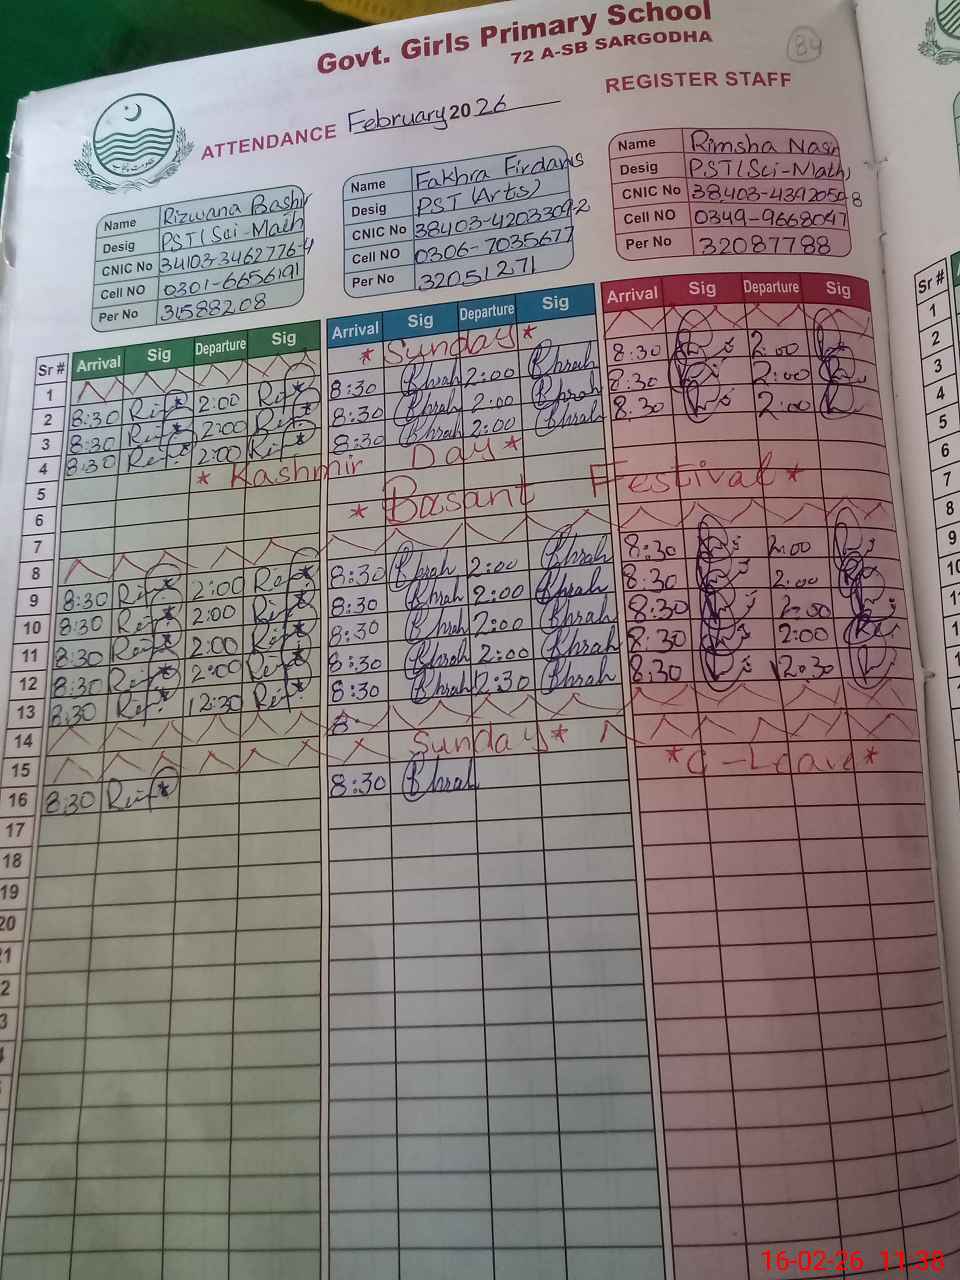 Govt. Girls Primary School
72 A-SB SARGODHA
84
REGISTER STAFF
ATTENDANCE February 2026
Name Rizwana Bashir
Desig PST (Sci-Math
CNIC No 34103-3462776-4
Cell NO 0301-6656191
Per No 31588208
Name Fakhra Firdaus
Desig PST (Arts)
CNIC No 38403-4203309-2
Cell NO 0306-7035677
Per No 32051271
Name Rimsha Nasr
Desig PST (Sci-Math)
CNIC No 38403-4392050-8
Cell NO 0349-9668047
Per No 32087788
Sr # Arrival Sig Departure Sig Arrival Sig Departure Sig Arrival Sig Departure Sig Sr #
1 * Sunday *
2 8:30 2:00 8:30 2:00 8:30 2:00
3 8:30 2:00 8:30 2:00 8:30 2:00
4 8:30 2:00 8:30 2:00 8:30 2:00
5 * Kashmir Day *
6 * Basant Festival *
7
8
9 8:30 2:00 8:30 2:00 8:30 2:00
10 8:30 2:00 8:30 2:00 8:30 2:00
11 8:30 2:00 8:30 2:00 8:30 2:00
12 8:30 2:00 8:30 2:00 8:30 2:00
13 8:30 12:30 8:30 12:30 8:30 12:30
14 8:
15 Sunday *
16 8:30 8:30 * C-Leave *
17
18
19
20
1
2
3
4
5
6
7
8
9
16-02-26 11:38